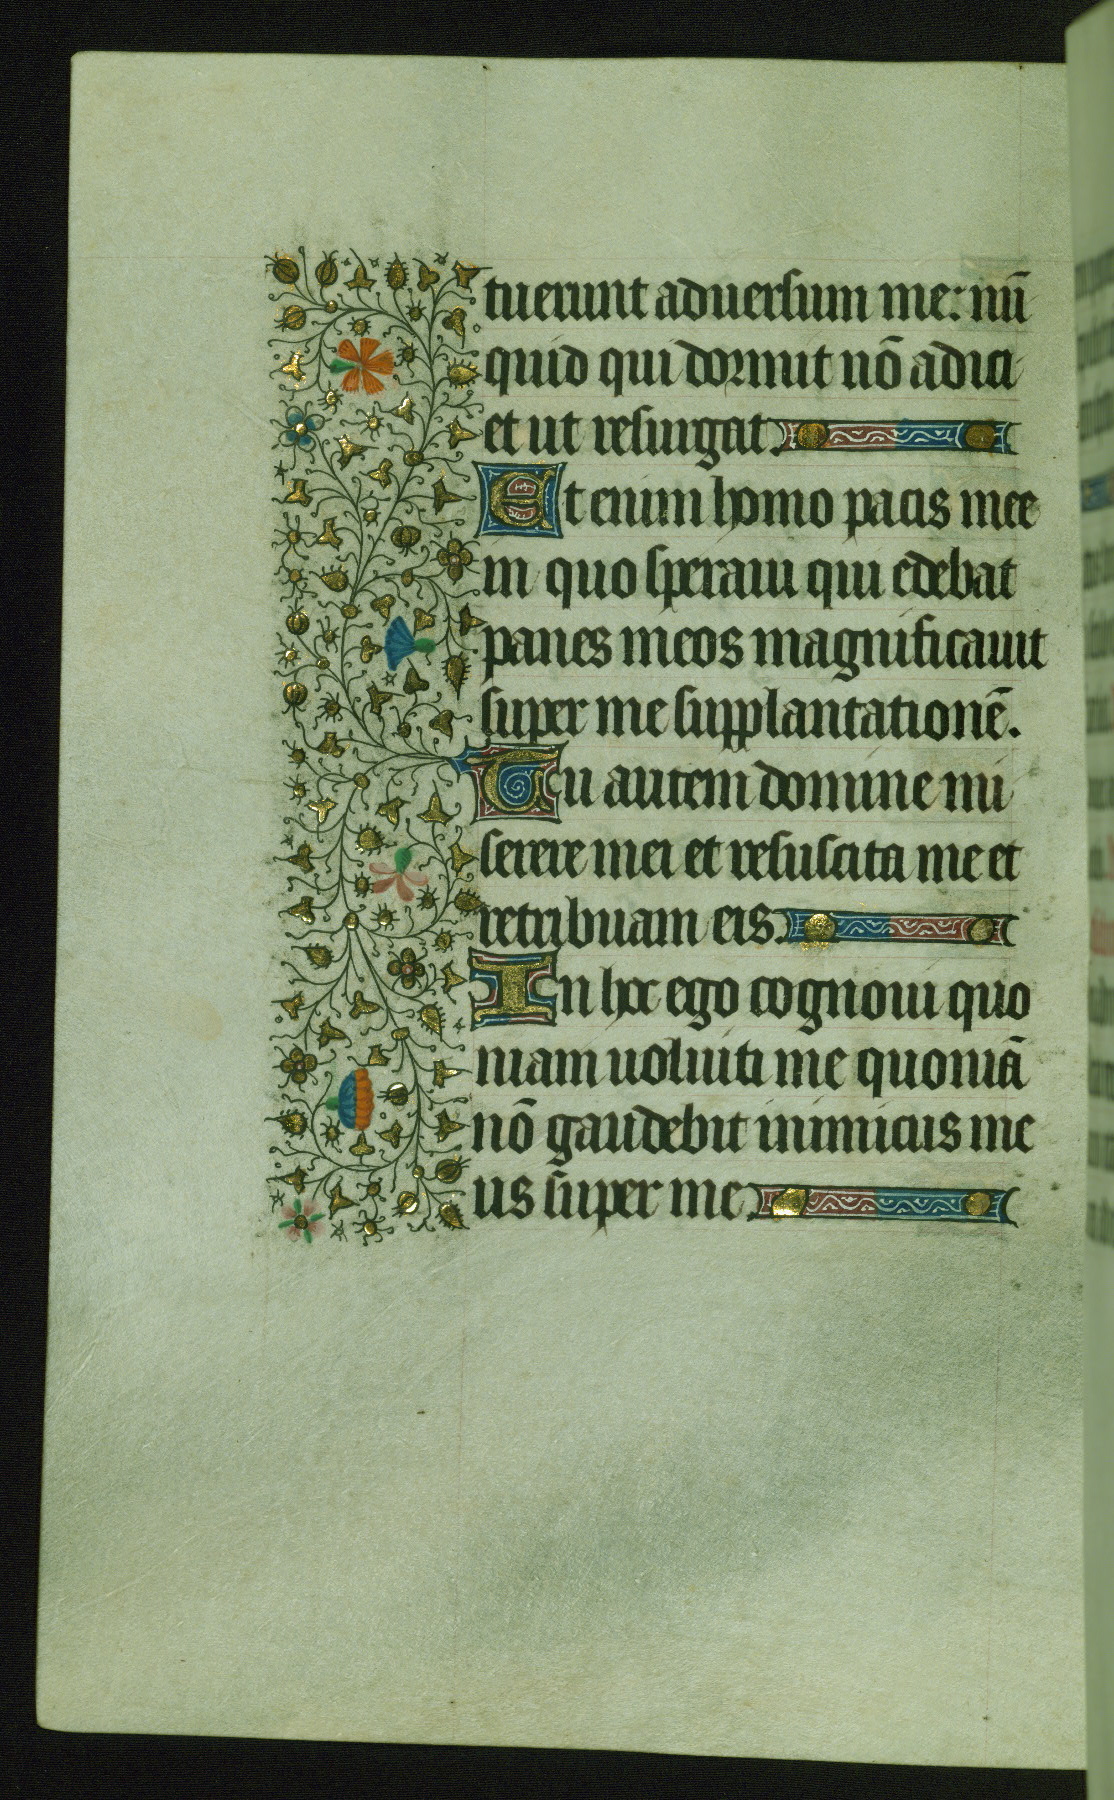 tuerunt aduersum me: nū
quid qui dormit nō adici
et ut resurgat.
Et enim homo pacis mee
in quo speraui qui edebat
panes meos magnificauit
super me supplantationē.
Tu autem domine mi
serere mei et resuscita me et
retribuam eis.
In hoc ego cognoui quo
niam uoluisti me quoniā
nō gaudebit inimicus me
us super me